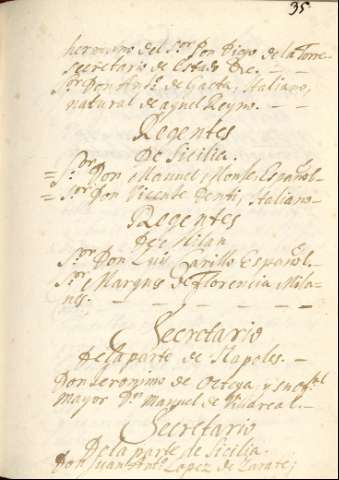 35
hermano del S.or Don Diego de la Torre
Secretario de Estado &c.
S.or Don Ant.o de Gaeta, Italiano,
natural de aquel Reyno.
Regentes
De Sicilia.
S.or Don Manuel Español
S.or Don Vicente Denti, Italiano
Regentes
De Milan
S.or Don Luis Carillo Español.
S.or Marques de Florencia Mila-
nes.
Secretario
De la parte de Napoles.
Don Jeronimo de y su of.al
mayor D.n Manuel de Villareal.
Secretario
De la parte de Sicilia.
Don Juan Ant.o Lopez de Zarate;